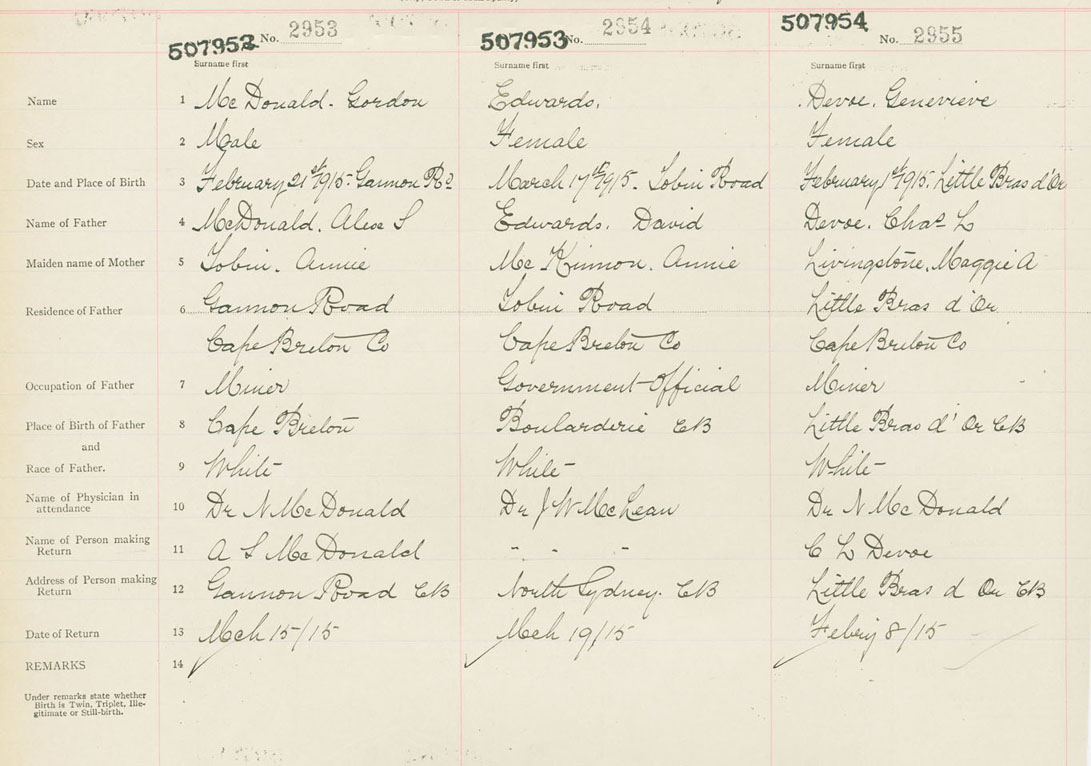 507952 No. 2953 507953 No. 2954 507954 No. 2955
Surname first Surname first Surname first
Name 1 McDonald. Gordon Edwards. Devoe. Genevieve
Sex 2 Male Female Female
Date and Place of Birth 3 February 21st 1915. Gannon Rd March 17th 1915. Tobin Road February 1st 1915. Little Bras d'Or
Name of Father 4 McDonald. Alex S Edwards. David Devoe. Chas L
Maiden name of Mother 5 Tobin. Annie McKinnon. Annie Livingstone. Maggie A
Residence of Father 6 Gannon Road Tobin Road Little Bras d'Or
Cape Breton Co Cape Breton Co Cape Breton Co
Occupation of Father 7 Miner Government Official Miner
Place of Birth of Father 8 Cape Breton Boularderie CB Little Bras d'Or CB
and
Race of Father. 9 White White White
Name of Physician in
attendance 10 Dr N McDonald Dr J W McLean Dr N McDonald
Name of Person making
Return 11 A S McDonald " " " C L Devoe
Address of Person making
Return 12 Gannon Road CB North Sydney. CB Little Bras d Or CB
Date of Return 13 Mch 15/15 Mch 19/15 Febry 8/15
REMARKS 14
Under remarks state whether
Birth is Twin, Triplet, Ille-
gitimate or Still-birth.